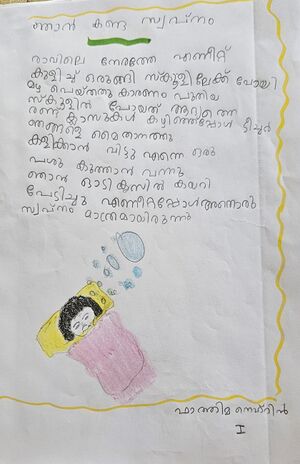 ഞാൻ കണ്ട സ്വപ്നം
രാവിലെ നേരത്തേ എണീറ്റ്
കുളിച്ച് ഒരുങ്ങി സ്കൂളിലേക്ക് പോയി
മഴ പെയ്തതു കാരണം പുതിയ
സ്കൂളിൽ പോയത് ആദ്യത്തെ
രണ്ടു ക്ലാസുകൾ കഴിഞ്ഞപ്പോൾ ടീച്ചർ
ഞങ്ങളെ മൈതാനത്തു
കളിക്കാൻ വിട്ടു എന്നെ ഒരു
പശു കുത്താൻ വന്നു
ഞാൻ ഓടി കയറി
പേടിച്ചു എണീറ്റപ്പോൾ അതൊരു
സ്വപ്നം മാത്രമായിരുന്നു
ഫാത്തിമ
I